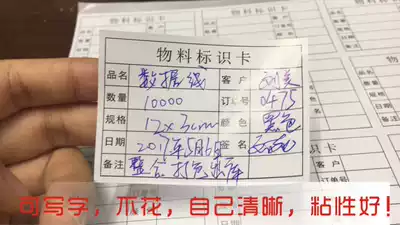 物料标识卡
品名 数据线 客户
数量 10000 订单号 0475
规格 12x3cm 颜色 黑色
日期 2017年5月6日 签名
备注 整合 打包出库
可写字，不花，自己清晰，粘性好！